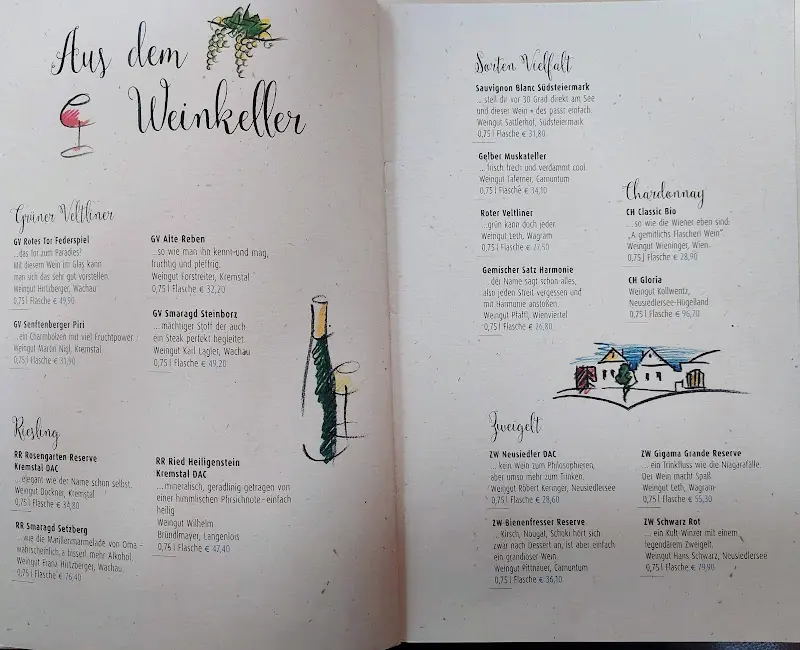 Aus dem
Weinkeller
Grüner Veltliner
GV Rotes Tor Federspiel
...das Tor zum Paradies?
Mit diesem Wein im Glas kann
man sich das sehr gut vorstellen.
Weingut Hirtzberger, Wachau
0,75 l Flasche € 49,90
GV Senftenberger Piri
...ein Charmbolzen mit viel Fruchtpower
Weingut Martin Nigl, Kremstal
0,75 l Flasche € 31,90
GV Alte Reben
...so wie man ihn kennt und mag,
fruchtig und pfeffrig.
Weingut Forstreiter, Kremstal
0,75 l Flasche € 32,20
GV Smaragd Steinborz
...mächtiger Stoff der auch
ein Steak perfekt begleitet.
Weingut Karl Lagler, Wachau
0,75 l Flasche € 49,20
Riesling
RR Rosengarten Reserve
Kremstal DAC
...elegant wie der Name schon selbst.
Weingut Dockner, Kremstal
0,75 l Flasche € 34,80
RR Smaragd Setzberg
...wie die Marillenmarmelade von Oma -
wahrscheinlich a bisserl mehr Alkohol.
Weingut Franz Hirtzberger, Wachau
0,75 l Flasche € 76,40
RR Ried Heiligenstein
Kremstal DAC
...mineralisch, geradlinig-getragen von
einer himmlischen Pfirsichnote-einfach
heilig
Weingut Wilhelm
Bründlmayer, Langenlois
0,75 l Flasche € 47,40
Sorten Vielfalt
Sauvignon Blanc Südsteiermark
...stell dir vor 30 Grad direkt am See
und dieser Wein • des passt einfach.
Weingut Sattlerhof, Südsteiermark
0,75 l Flasche € 31,80
Gelber Muskateller
...frisch frech und verdammt cool.
Weingut Taferner, Carnuntum
0,75 l Flasche € 34,10
Roter Veltliner
...grün kann doch jeder.
Weingut Leth, Wagram
0,75 l Flasche € 27,50
Gemischer Satz Harmonie
...der Name sagt schon alles,
also jeden Streit vergessen und
mit Harmonie anstoßen.
Weingut Pfaffl, Weinviertel
0,75 l Flasche € 26,80
Chardonnay
CH Classic Bio
...so wie die Wiener eben sind:
„A gemitlichs Flascherl Wein“.
Weingut Wieninger, Wien.
0,75l Flasche € 28,90
CH Gloria
Weingut Kollwentz,
Neusiedlersee-Hügelland
0,75l Flasche € 96,70
Zweigelt
ZW Neusiedler DAC
... kein Wein zum Philosophieren,
aber umso mehr zum Trinken.
Weingut Robert Keringer, Neusiedlersee
0,75 l Flasche € 28,60
ZW Bienenfresser Reserve
...Kirsch, Nougat, Schoki hört sich
zwar nach Dessert an, ist aber einfach
ein grandioser Wein.
Weingut Pittnauer, Carnuntum
0,75 l Flasche € 36,10
ZW Gigama Grande Reserve
... ein Trinkfluss wie die Niagarafälle.
Der Wein macht Spaß
Weingut Leth, Wagram
0,75 l Flasche € 55,30
ZW Schwarz Rot
... ein Kult-Winzer mit einem
legendärem Zweigelt.
Weingut Hans Schwarz, Neusiedlersee
0,75 l Flasche € 79,90